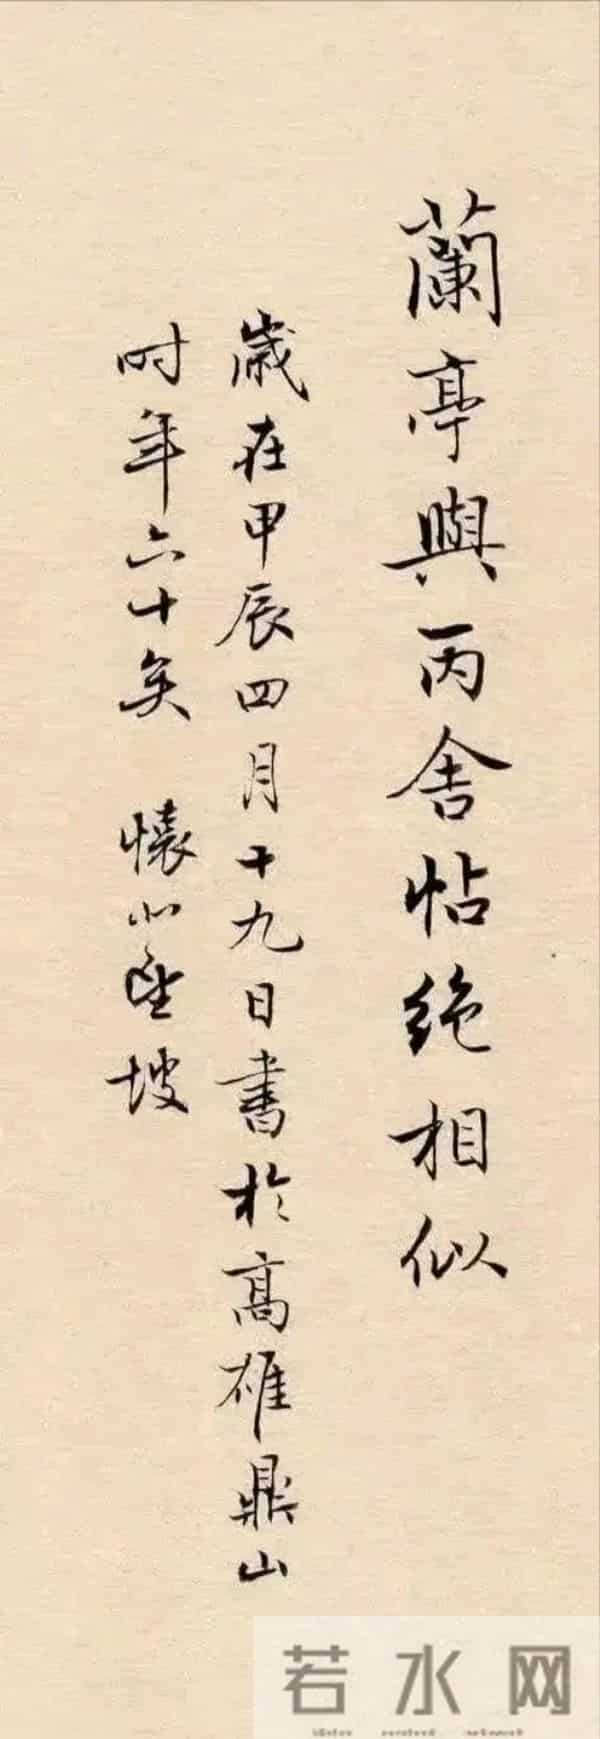 蘭亭與丙舍帖绝相似
歲在甲辰四月十九日書於高雄鼎山
时年六十矣 懷小坡
若水网